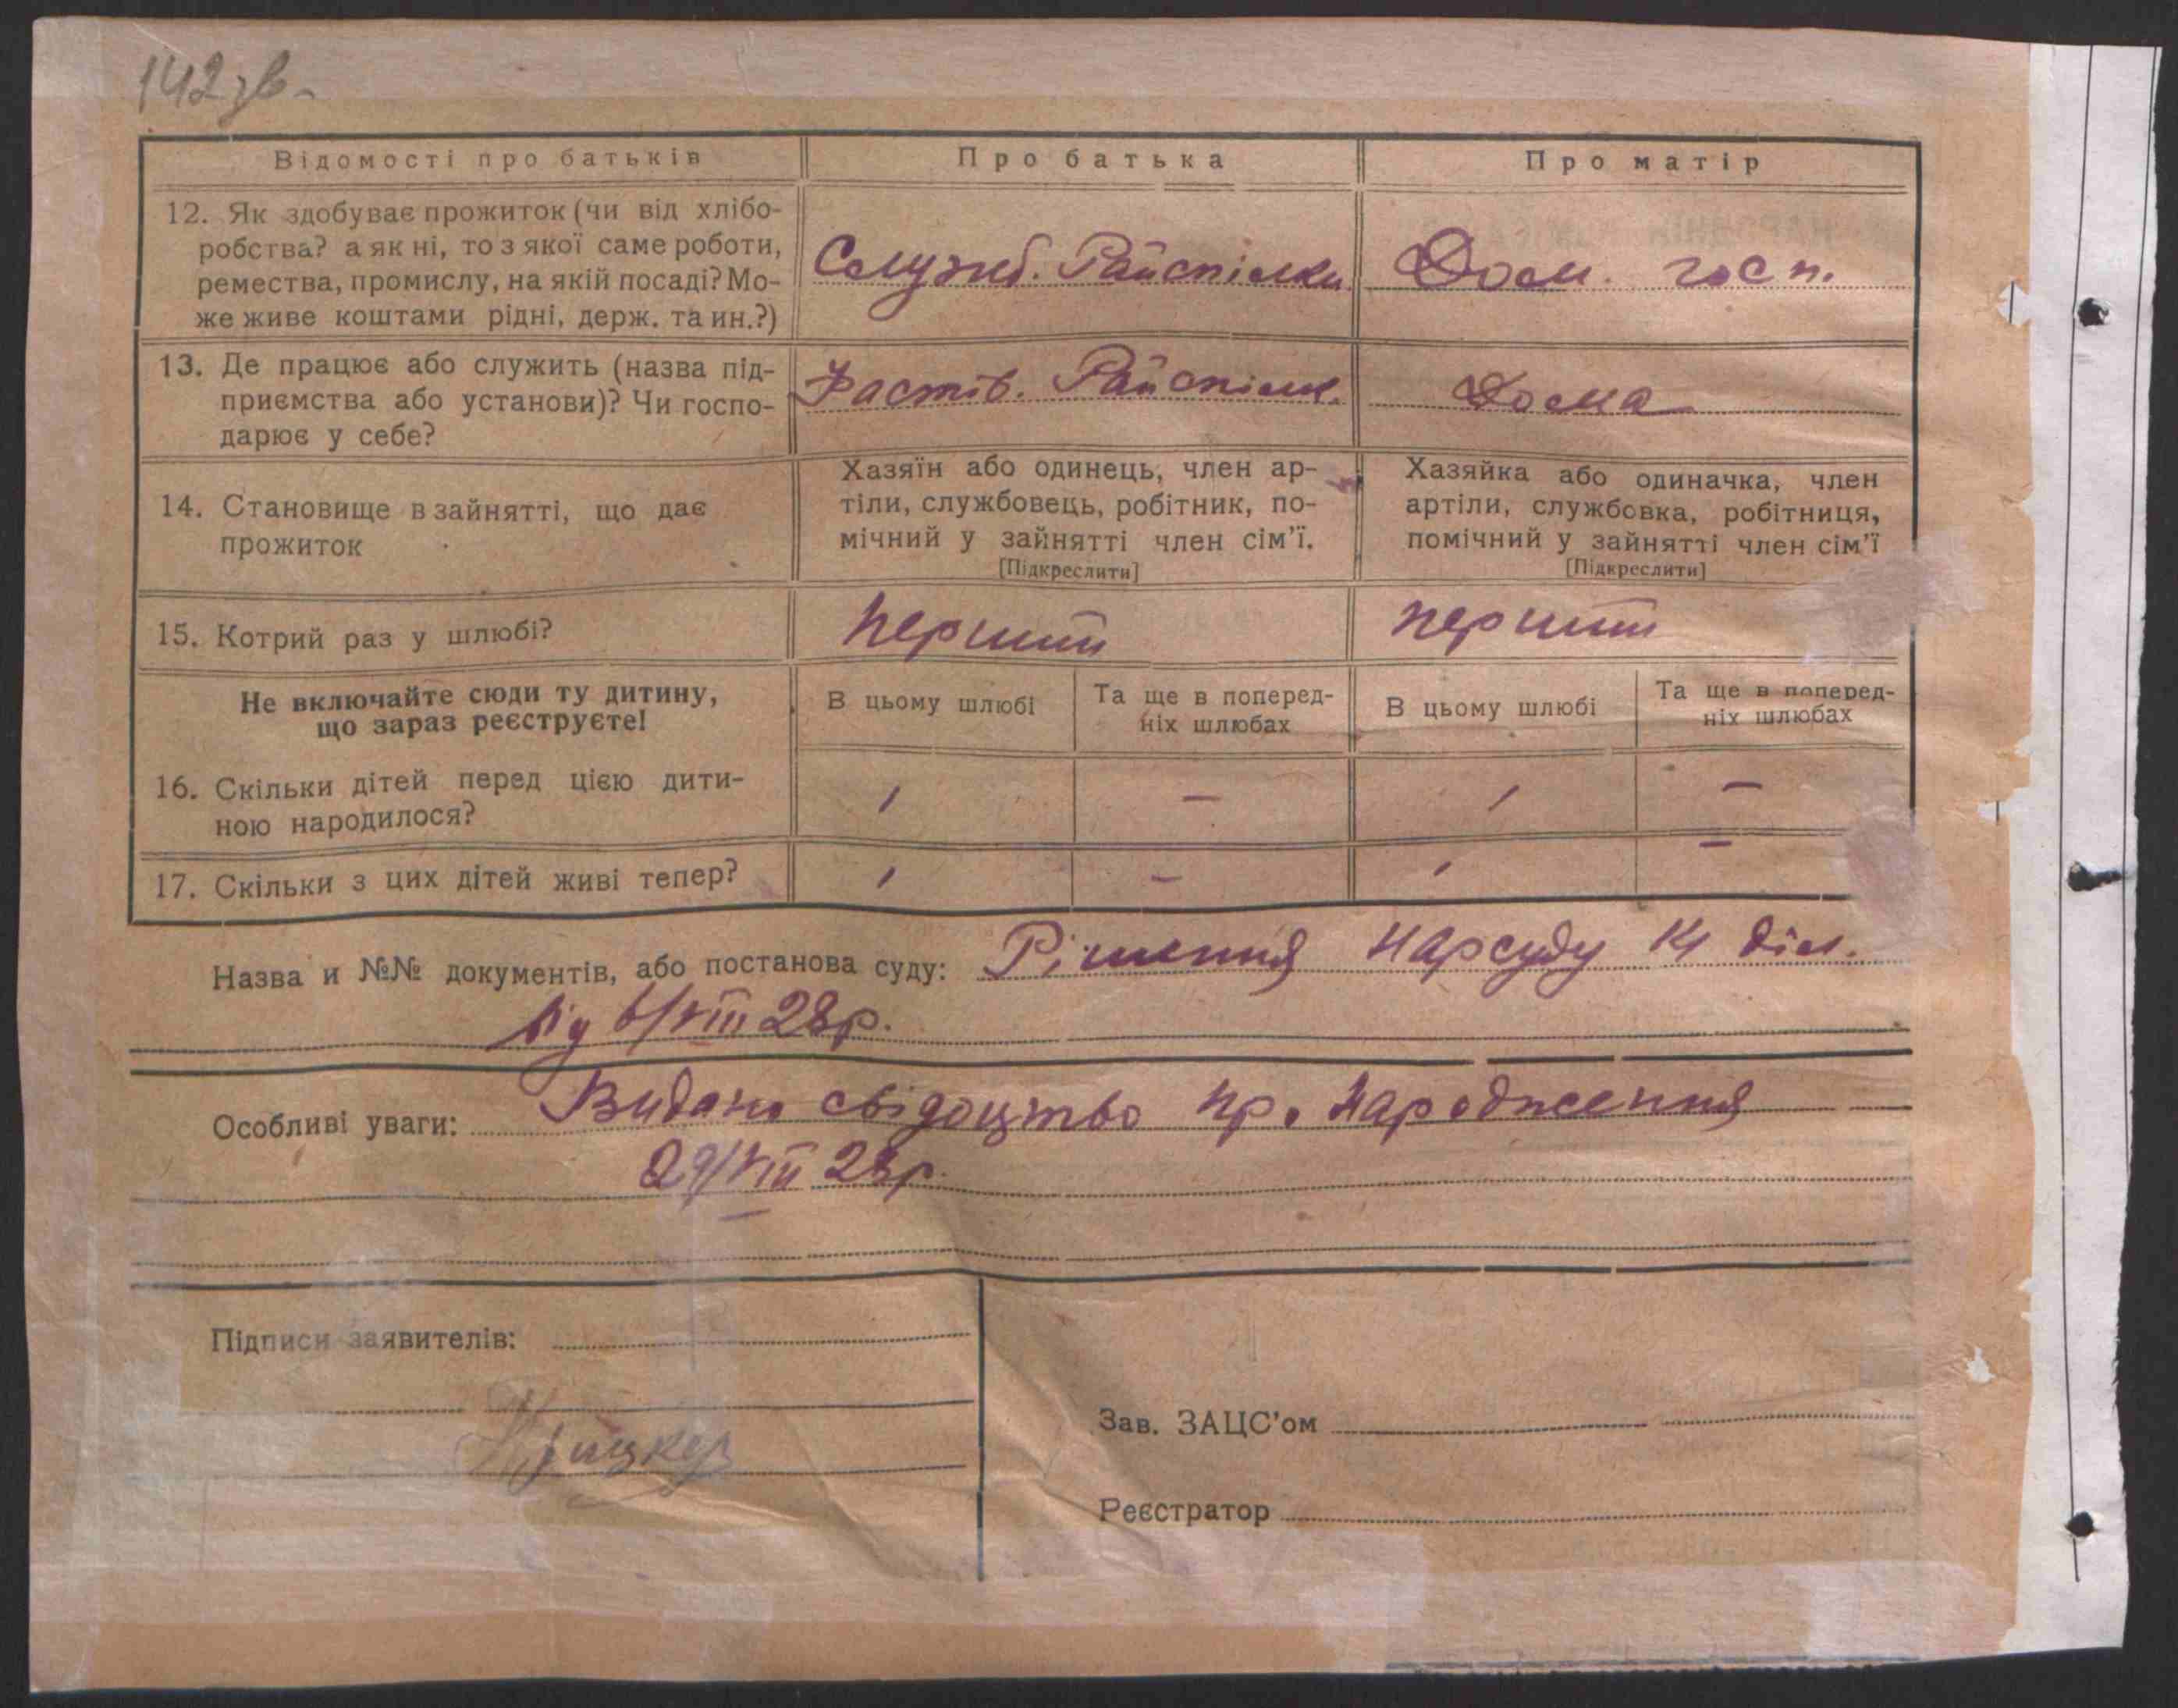 142 зв.
Відомості про батьків
Про батька
Про матір
12. Як здобуває прожиток (чи від хлібо-
робства? а як ні, то з якої саме роботи,
ремества, промислу, на якій посаді? Мо-
же живе коштами рідні, держ. та ин.?)
Служб. Райспілки
Дом. госп.
13. Де працює або служить (назва під-
приємства або установи)? Чи госпо-
дарює у себе?
Фастів. Райспілк.
Дома
14. Становище в зайнятті, що дає
прожиток
Хазяїн або одинець, член ар-
тіли, службовець, робітник, по-
мічний у зайнятті член сім'ї.
[Підкреслити]
Хазяйка або одиначка, член
артіли, службовка, робітниця,
помічний у зайнятті член сім'ї
[Підкреслити]
15. Котрий раз у шлюбі?
перший
перший
Не включайте сюди ту дитину,
що зараз реєструєте!
В цьому шлюбі
Та ще в поперед-
ніх шлюбах
В цьому шлюбі
Та ще в поперед-
ніх шлюбах
16. Скільки дітей перед цією дити-
ною народилося?
1 — 1 —
17. Скільки з цих дітей живі тепер?
1 — 1 —
Назва и №№ документів, або постанова суду: Рішення Нарсуду 14 діл.
від 6/VIII 28р.
Особливі уваги: Видано свідоцтво про народження
29/VIII 28р.
Підписи заявителів:
Зав. ЗАЦС'ом
Реєстратор